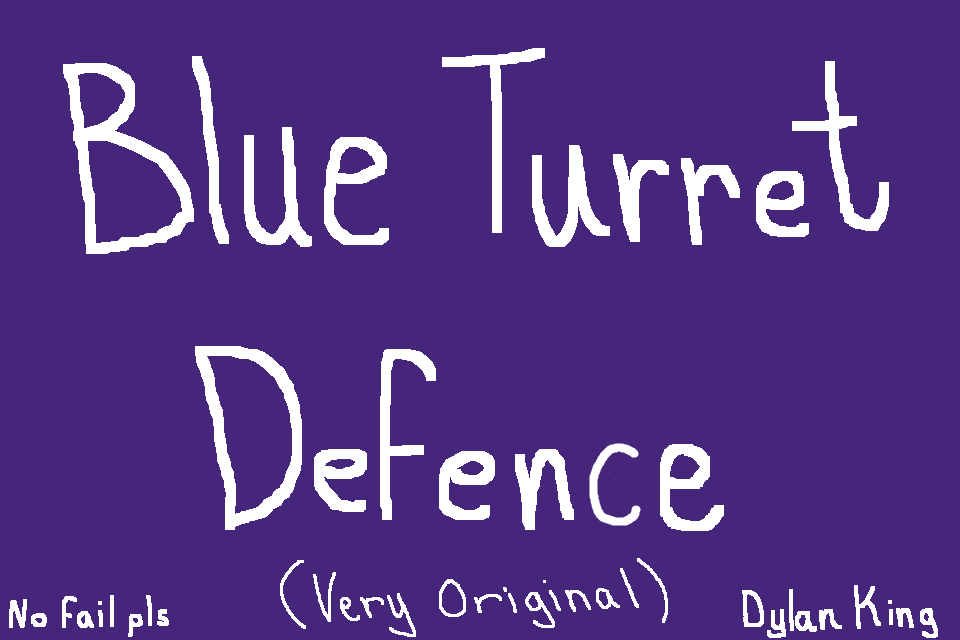 Blue Turret
Defence
(Very Original)
No fail pls
Dylan King